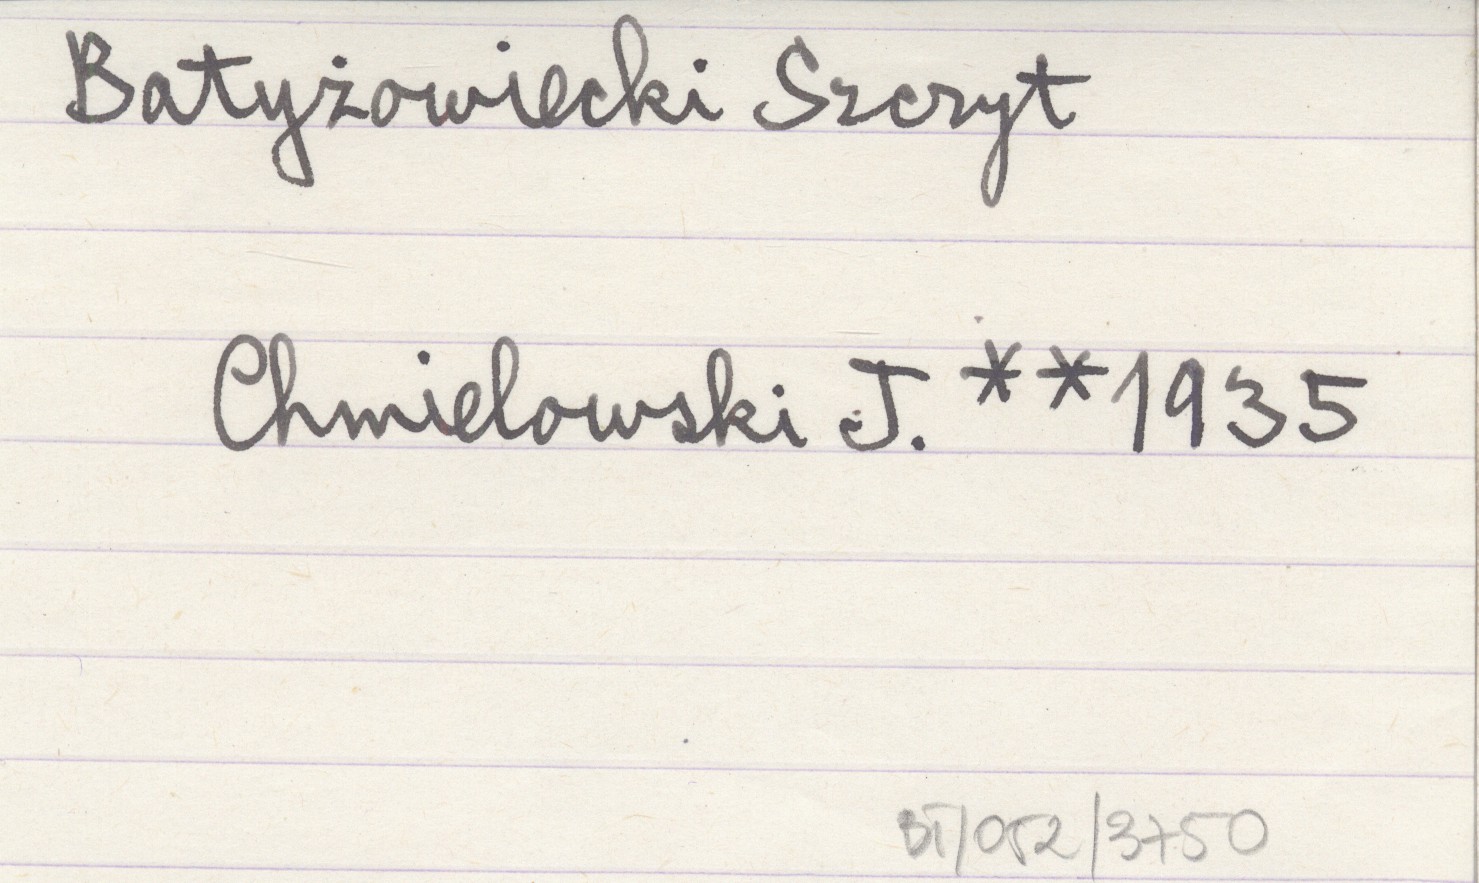 Batyżowiecki Szczyt
Chmielowski J. **1935
BT/052/3750